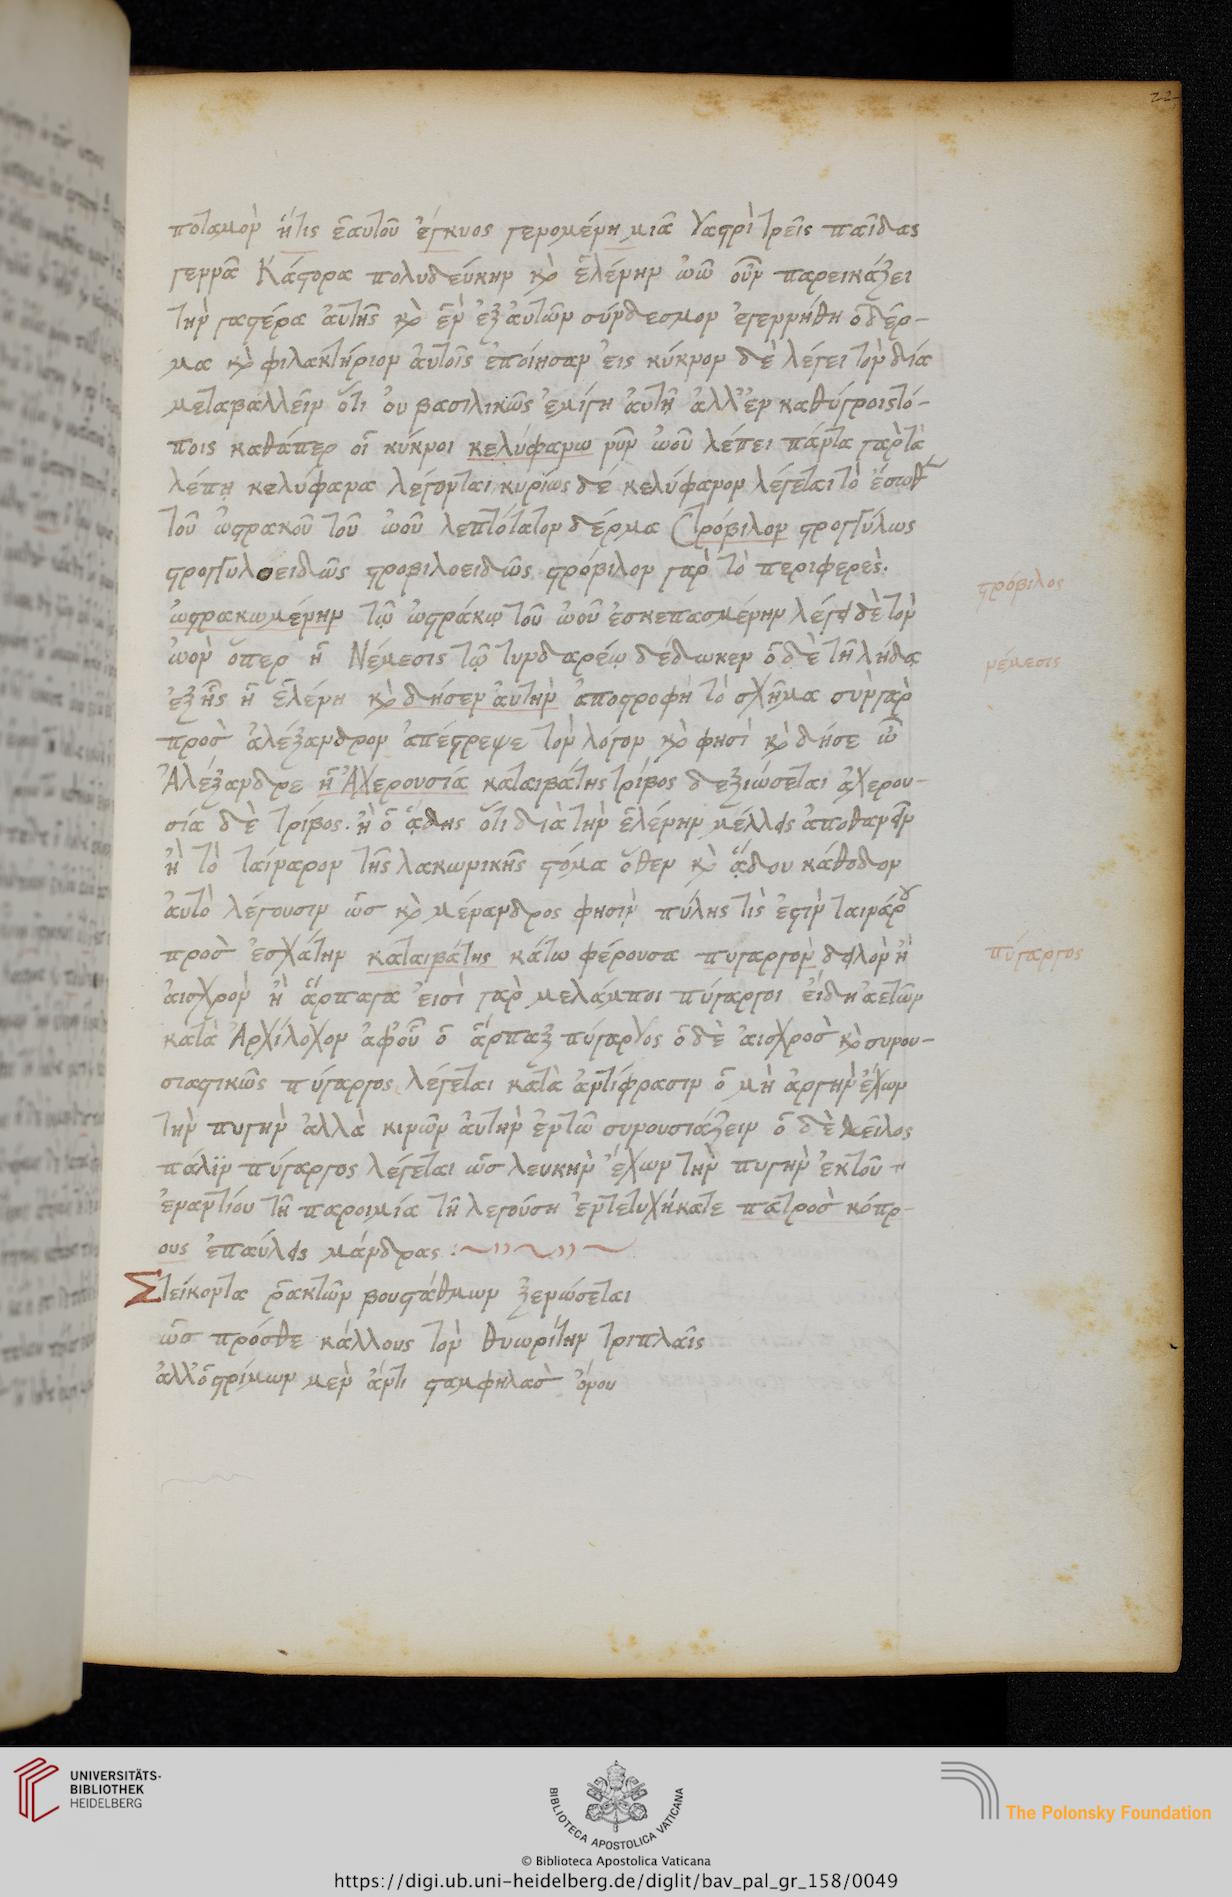 22
ποταμὸν ἥτις ἑαυτοῦ ἔγκυος γενομένη μιᾶ γαστρὶ τρεῖς παῖδας
γεννᾶ Κάστορα πολυδεύκην κὶ ἑλένην ὠῶ οὖν παρεικάζει
τὴν γαστέρα ἀυτῆς κὶ ἓν ἐξ ἀυτῶν σύνδεσμον ἐγεννήθη ὃ δέρ-
μα κὶ φιλακτήριον ἀυτοῖς ἐποίησαν ἐις κύκνον δὲ λέγει τὸν δία
μεταβαλλεῖν ὅτι ὀυ βασιλικῶς ἐμίγη ἀυτῆ ἀλλ' ἐν καθύγροις τό-
ποις καθάπερ οἱ κύκνοι κελύφανω νῦν ὠοῦ λέπει πάντα γὰρ τὰ
λέπη κελύφανα λέγονται κυρίως δέ κελύφανον λέγεται τὸ ἔσωθ
τοῦ ὠστρακοῦ τοῦ ὠοῦ λεπτότατον δέρμα Στρόβιλον στρογγύλως
στρογγυλοειδῶς στροβιλοειδῶς στρόβιλον γὰρ τὸ περιφερές.
στρόβιλος
ὠστρακωμένην τῶ ὠστράκω τοῦ ὠοῦ ἐσκεπασμένην λέγει δὲ τὸν
ὠὸν ὅπερ ἡ Νέμεσις τῶ τυνδαρέω δέδωκεν ὁ δὲ τῆ λήδα
νέμεσις
ἐξ ἧς ἡ ἑλένη κὶ δήσεν ἀυτὴν ἀποστροφὴ τὸ σχῆμα συν γὰρ
προσ ἀλέξανδρον ἀπέστρεψε τὸν λόγον κὶ φησὶ κὶ δήσε ὦ
Ἀλέξανδρε ἡ Ἀχερουσία καταιβάτης τρίβος δεξιώσεται ἀχερου-
σία δὲ τρίβος. ἢ ὁ ἅδης ὅτι διὰ τὴν ἑλένην μέλλεις ἀποθανεῖν
ἢ τὸ ταίναρον τῆς λακωνικῆς στόμα ὅθεν κὶ ἅδου κάθοδον
ἀυτὸ λέγουσιν ὡσ κὶ μένανδρος φησὶν πύλης τὶς ἐστὶν ταινάρου
προσ ἐσχάτην καταιβάτης κάτω φέρουσα πυγαργον δειλὸν ἢ
πύγαργος
ἀισχρὸν ἢ ἅρπαγα ἐισὶ γὰρ μελάμποι πύγαργοι ἐίδη ἀετῶν
κατὰ Ἀρχίλοχον ἀφ' οὗ ὁ ἅρπαξ πύγαργος ὁ δὲ ἀισχροσ κὶ συνου-
σιαστικῶς πύγαργος λέγεται κατὰ ἀντίφρασιν ὁ μὴ ἀργὴν ἔχων
τὴν πυγὴν ἀλλὰ κινῶν ἀυτὴν ἐν τῶ συνουσιάζειν ὁ δὲ δειλος
πάλϊν πύγαργος λέγεται ὡσ λευκὴν ἔχων τὴν πυγὴν ἐκ τοῦ
ἐναντίου τῆ παροιμία τῆ λεγούση ἐντετυχήκατε πατροσ κόπρ-
ους ἐπαύλεις μάνδρας :~
Στείκοντα ρακτῶν βουστάθμων ξενώσεται
ὡσ πρόσθε κάλλους τὸν θυωρίτην τριπλαῖς
ἀλλ' ὁ στρίμων μεν ἀντι σταμφηλασ ὅρου
UNIVERSITÄTS-
BIBLIOTHEK
HEIDELBERG
BIBLIOTECA APOSTOLICA VATICANA
The Polonsky Foundation
© Biblioteca Apostolica Vaticana
https://digi.ub.uni-heidelberg.de/diglit/bav_pal_gr_158/0049